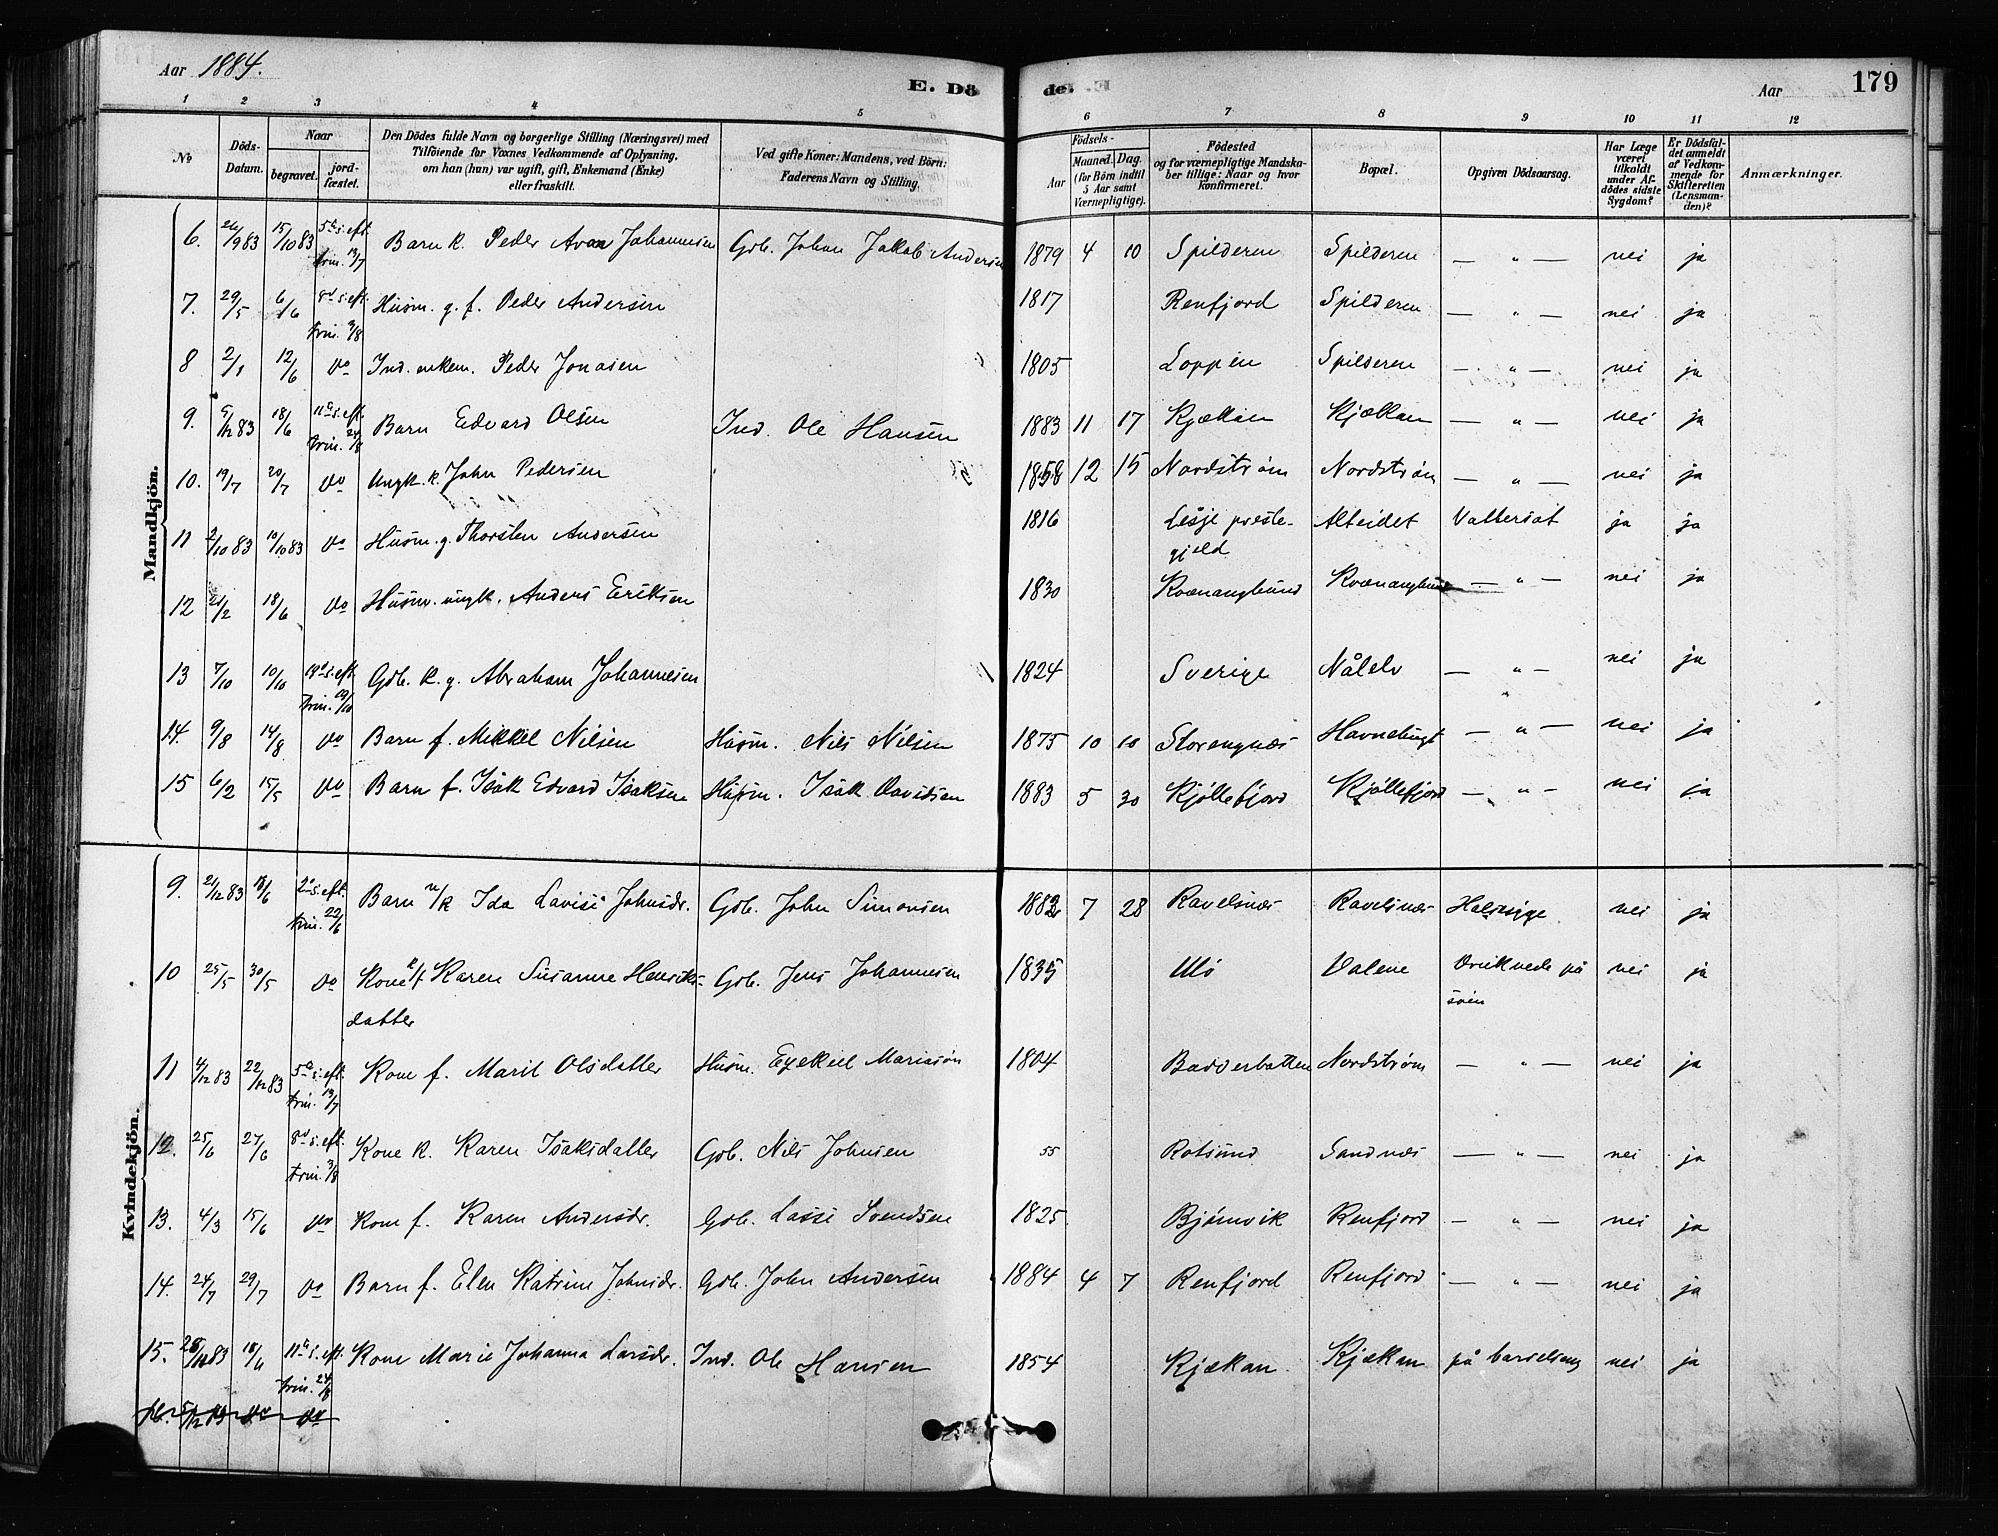 Aar 1884.
E. Dö
de.
Aar
179
1 2 3 4 5 6 7 8 9 10 11 12
No
Döds-Datum.
Naar
begravet.
jord-fæstet.
Den Dödes fulde Navn og borgerlige Stilling (Næringsvei) med
Tilföiende for Voxnes Vedkommende af Oplysning,
om han (hun) var ugift, gift, Enkemand (Enke)
eller fraskilt.
Ved gifte Koner: Mandens, ved Börn:
Faderens Navn og Stilling.
Födsels-
Aar
Maaned. Dag.
(for Börn indtil
5 Aar samt
Værnepligtige).
Födested
og for værnepligtige Mandska-
ber tillige: Naar og hvor
konfirmeret.
Bopæl.
Opgiven Dödsaarsag.
Har Læge
været
tilkaldt
under Af-
dödes sidste
Sygdom?
Er Dödsfal-
det anmeldt
af Vedkom-
mende for
Skifteretten
(Lensman-
den)?
Anmærkninger.
Mandkjön.
6. 26/9 83 15/10 83 5te s. eft. trin. 13/7 Barn k. Peder Johannesen Gdb. Johan Jakob Andersen 1879 4 10 Spilderen Spilderen — " — nei ja
7. 29/5 6/6 8d s. eft. trin. 3/8 Husm. g. f. Peder Andersen 1817 Renfjord Spilderen — " — nei ja
8 2/1 12/6 do Ind. enkem. Peder Jonasen 1805 Loppen Spilderen — " — nei ja
9. 5/12 83 18/6 11te s. eft. trin. 24/8 Barn Edvard Olsen Ind. Ole Hansen 1883 11 17 Kjækan Kjækan — " — nei ja
10. 19/7 20/7 do Ungk. k. John Pedersen 1858 12 15 Nordstrøm Nordstrøm — " — nei ja
11 2/10 83 10/10 83 do Husm. g. Thorsten Andersen 1816 Lesje preste-gjeld Alteidet Vattersot ja ja
12 21/2 18/6 do Husm. ungk. Anders Eriksen 1830 Kvænangbund Kvænangbund — " — nei ja
13 7/10 10/10 19d s. eft. trin. 19/10 Gdb. k. g. Abraham Johannesen 1824 Sverige Nålelv — " — nei ja
14. 9/8 14/8 do Barn f. Mikkel Nilsen Husm. Nils Nilsen 1875 10 10 Storengnæs Havnebugt — " — nei ja
15 6/2 15/5 do Barn f. Isak Edvard Isaksen Husm. Isak Davidsen 1883 5 30 Kjøllefjord Kjøllefjord — " — nei ja
Kvindekjön.
9. 21/12 83 18/6 2d s. eft. trin. 22/6 Barn n/k Ida Lavise Johnsdr. Gdb. John Simonsen 1882 7 28 Ravelsnæs Ravelsnæs Halssyge. nei ja
10 25/5 30/5 do Kone k/f Karen Susanne Henriks-datter Gdb. Jens Johannesen 1835 Ulö Valene Druknede på søen nei ja
11 4/12 83 22/12 83 5te s. eft. trin. 13/7 Kone f. Marit Olsdatter Husm. Ezekiel Mariasøn 1804 Badderbotten Nordstrøm — " — nei ja
12. 25/6 27/6 8d s. eft. trin. 3/8 Kone k. Karen Isaksdatter Gdb. Nils Johnsen 55 Rotsund Sandnæs — " — nei ja
13. 4/3 15/6 do Kone f. Karen Andersdr. Gdb. Lasse Svendsen 1825 Bjørnvik Renfjord — " — nei ja
14. 24/7 29/7 do Barn f. Elen Katrine Johnsdr. Gdb. John Andersen 1884 4 7 Renfjord Renfjord — " — nei ja
15. 28/11 83 18/6 11te s. eft. trin. 24/8 Kone Marie Johanna Larsdr. Ind. Ole Hansen 1854 Kjækan Kjækan på barselseng nei ja
16. 5/12 do do